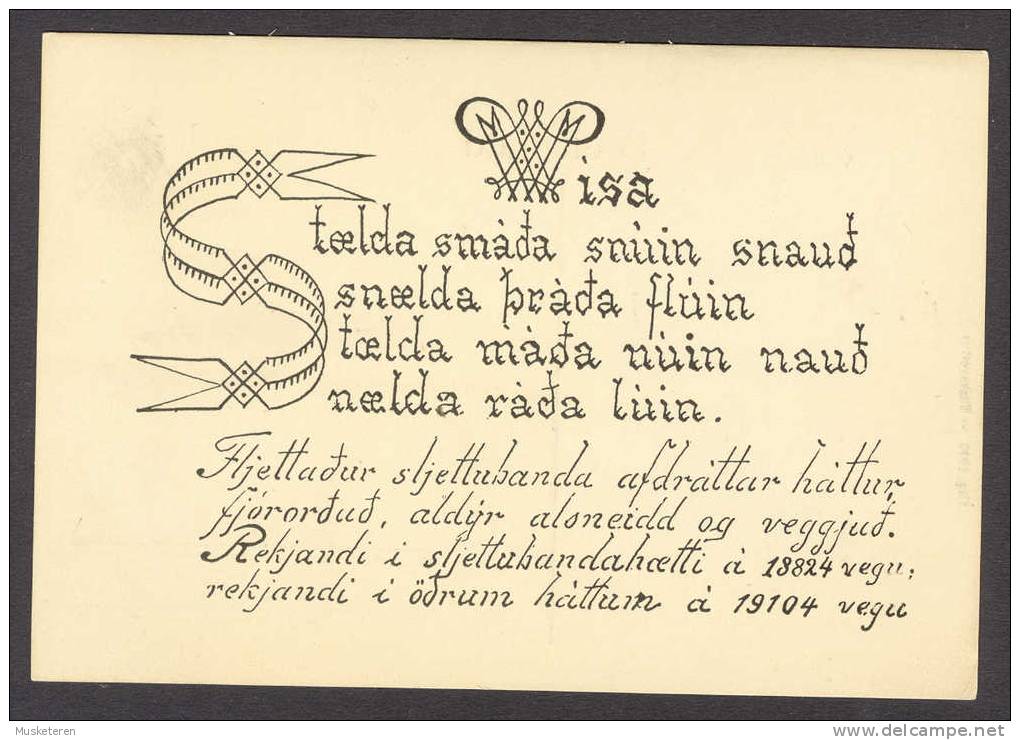 Wisa
Stælda smáða snúin snauð
snælda þráða flúin
tælda máða núin nauð
nælda ráða lúin.
Fljettaður sljettubanda afdráttar háttur,
fjórorðuð, aldýr alsneidd og veggjuð.
Rekjandi i sljettubandahætti á 18824 vegu;
rekjandi i öðrum háttum á 19104 vegu
Musketeren
www.delcampe.net